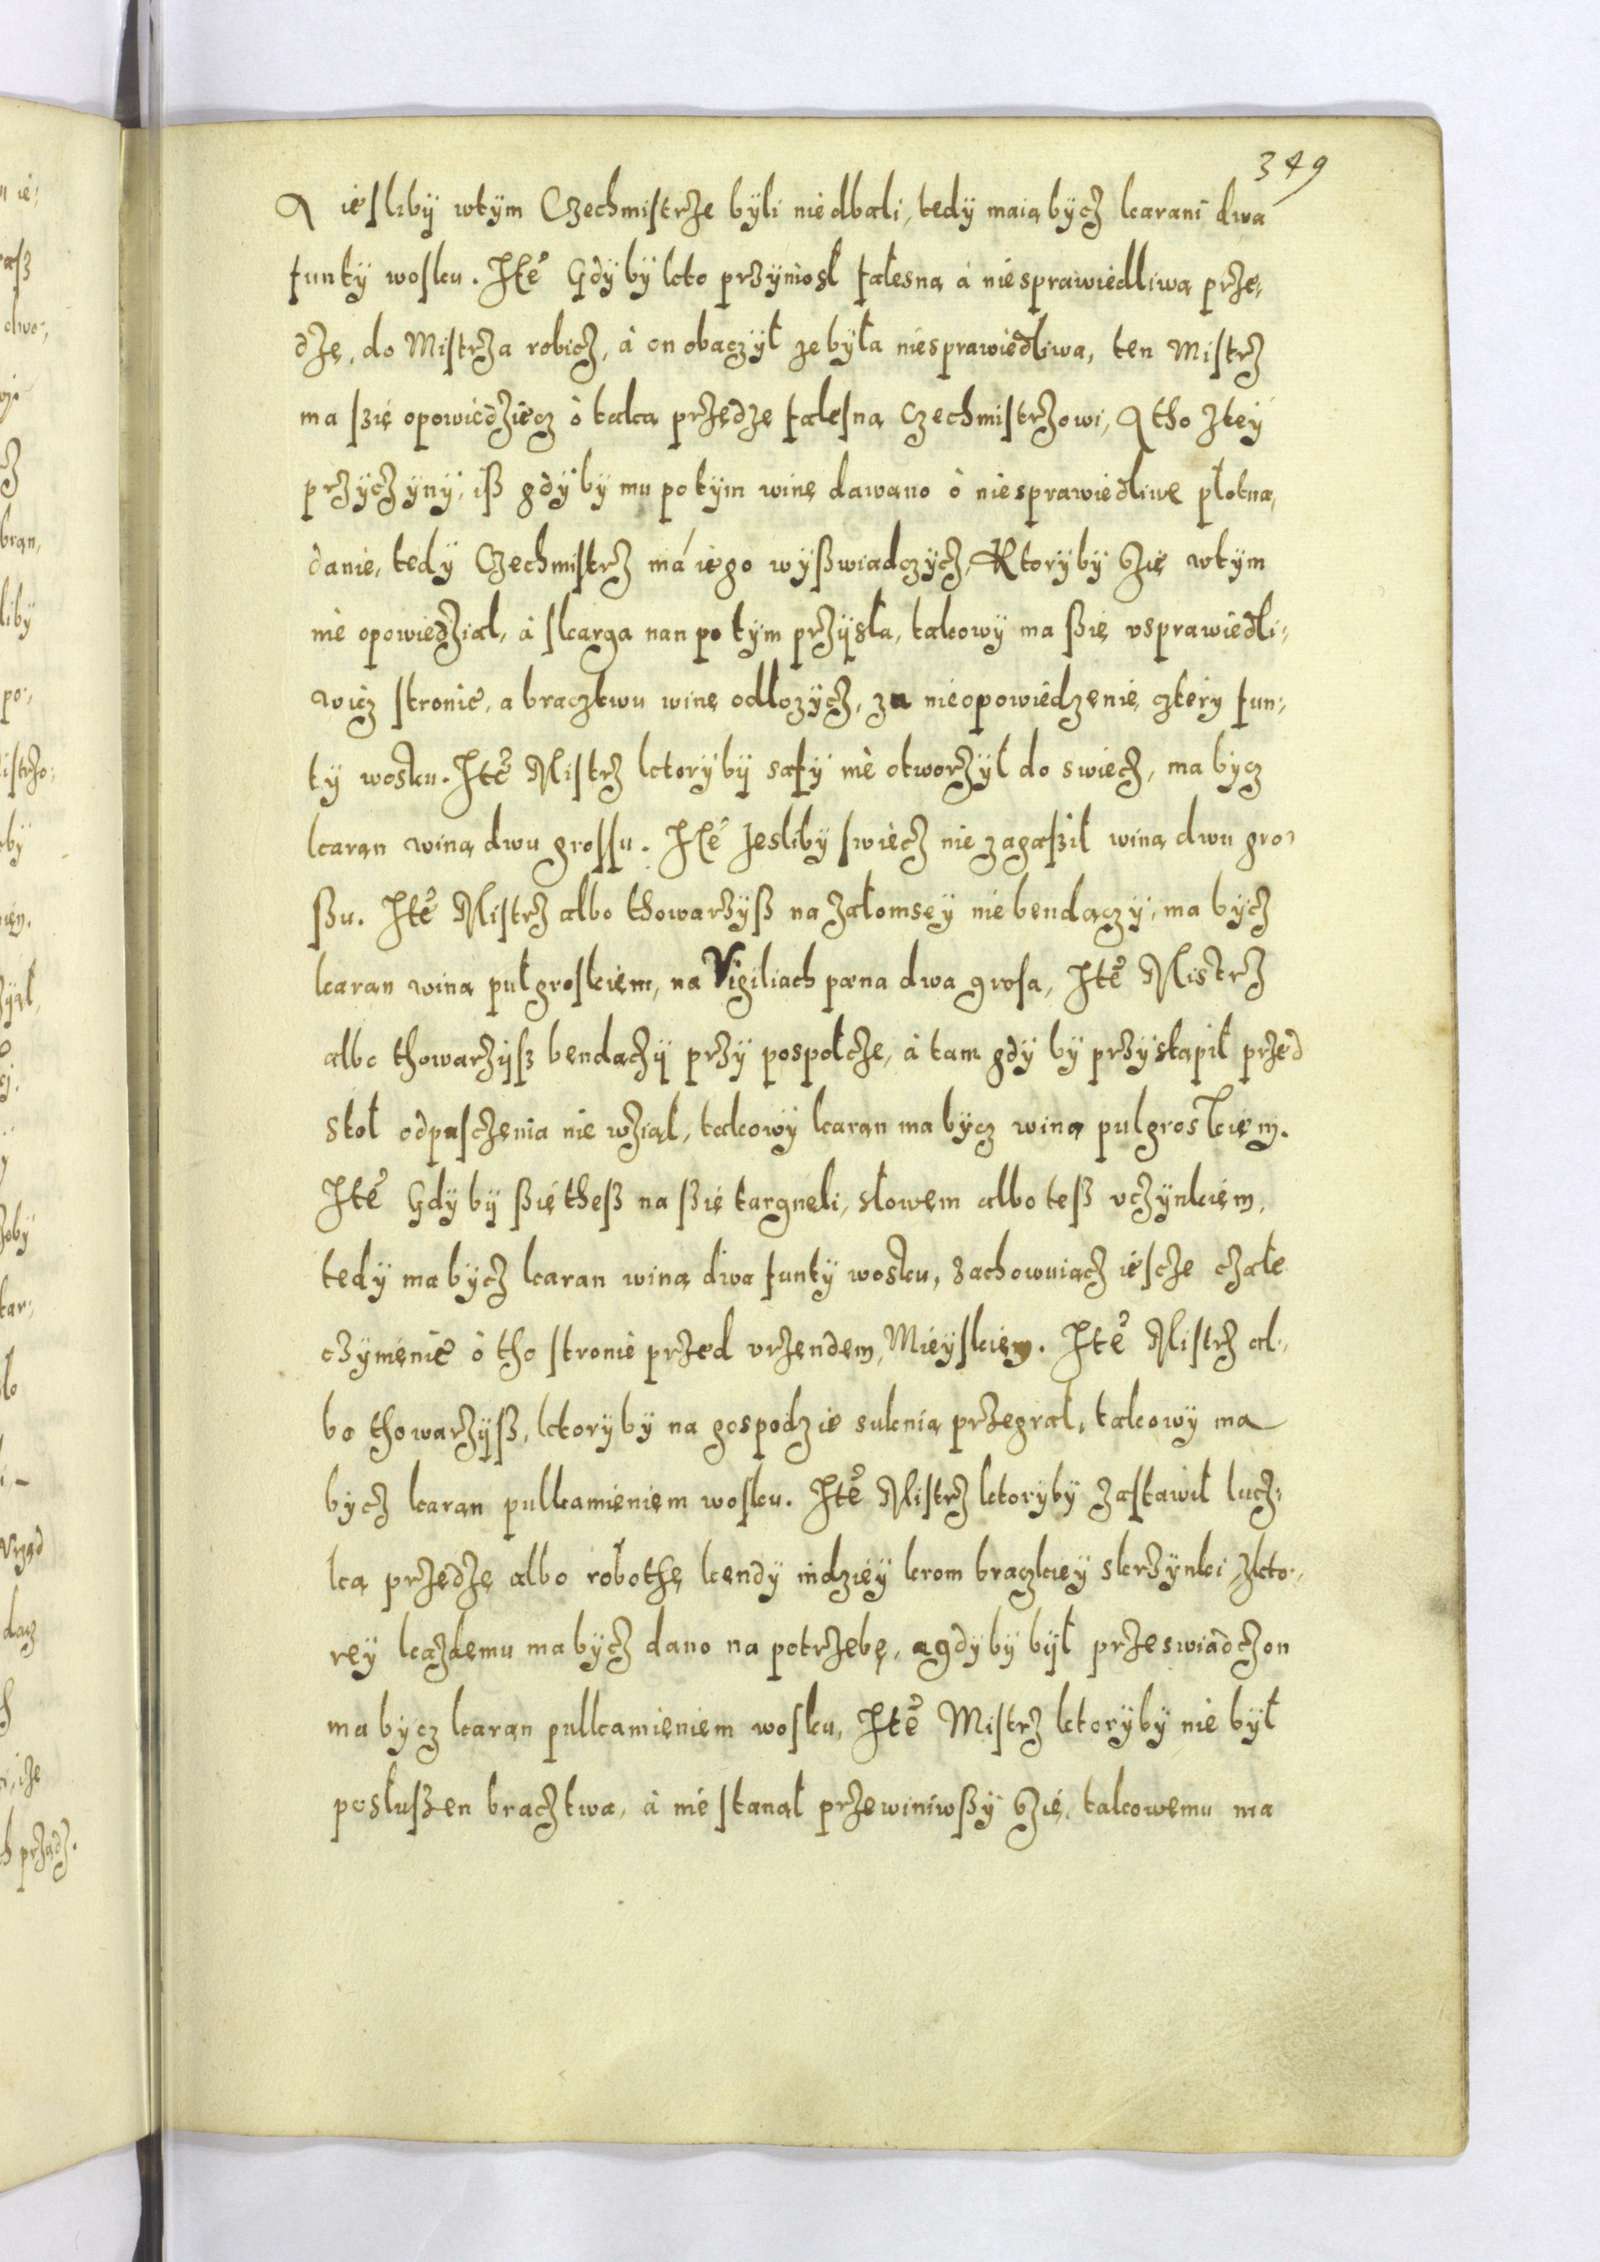 349
A iesliby wtÿm Czechmistrze bÿli niedbali, tedÿ maią bÿcz karani dwa
funtÿ wosku. Itē Gdÿ bÿ kto przÿniosł fałesną á niesprawiedliwą prze,
dzę, do Mistrza robicz, á on obaczÿł ze bÿła niesprawiedliwa, ten Mistrz
ma szię opowiedziecz ò taką przędze fałesną Czechmistrzowi, A tho ztey
przÿczÿnÿ, iß gdÿ bÿ mu potÿm winę dawano ò niesprawiedliwe płotna,
danie, tedÿ Czechmistrz má iego wÿßwiadczÿcz, Ktorÿbÿ szię wtÿm
nie opowiedział, á skarga nan po tÿm przÿsła, takowÿ ma ßię vsprawiedli,
wicz stronie, a bracztwu winę odłozÿcz, za nieopowiedzenie czterÿ fun,
tÿ wosku. Itē Mistrz ktorÿbÿ safÿ nie otworzÿł do swiecz, ma bÿcz
karan winą dwu grossu. Itē Jesliby swiecz nie zagaßił winą dwu gro,
ßu. Itē Mistrz albo thowarzÿß na załomsey niebendączÿ, ma bÿcz
karan winą pułgroskiem, na Vigiliach pæna dwa grosa, Itē Mistrz
albo thowarzÿß bendączÿ przÿ pospołcze, á tam gdÿ bÿ przÿstąpił przed
stoł odpusczenia nie wziął, takowÿ karan ma bÿcz winą pulgroskiem.
Itē Gdÿ bÿ ßię theß na ßię targnęli, słowem albo teß vczÿnkiem,
tedÿ ma bÿcz karan winą dwa funtÿ wosku, zachowuiącz iescze czałe
czÿnienie ò tho stronie przed vrzendem, Mieÿskiem. Itē Mistrz al,
bo thowarzÿß, ktorÿbÿ na gospodzie suknią przegrał, takowÿ ma
bÿcz karan pulkamieniem wosku. Itē Mistrz ktorÿbÿ zastawił lucz,
ką przedzę albo robothę kendÿ indzieÿ krom braczkieÿ skrzÿnki zkto,
reÿ kazdemu ma bÿcz dano na potrzebę, agdÿbÿ bÿł przeswiadczon
ma bÿcz karan pulkamieniem wosku, Itē Mistrz ktorÿbÿ nie bÿł
posłuszen bracztwa, á nie stanał przewiniwßÿ szię, takowemu ma